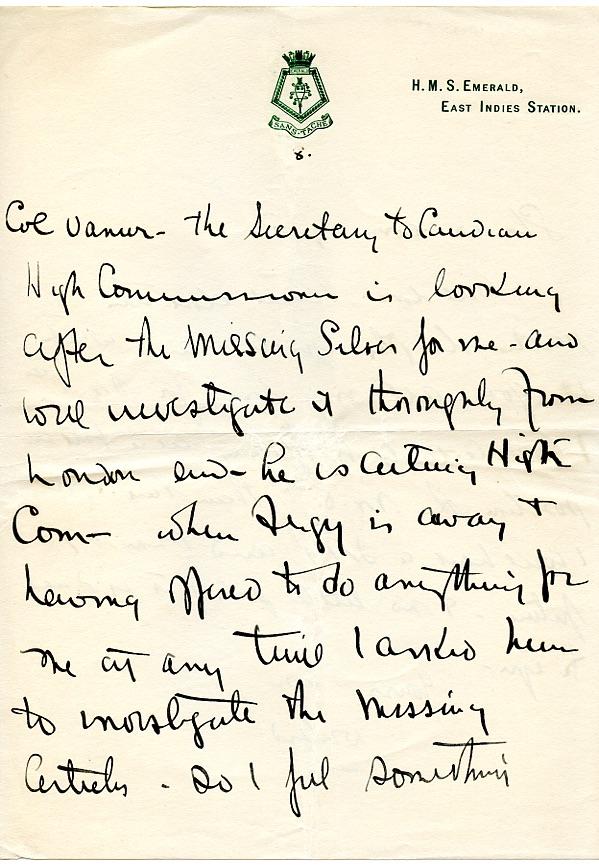 H.M.S. EMERALD,
EAST INDIES STATION.
SANS-TACHE
8.
Col Vanier - the Secretary to Canadian
High Commissioner is looking
after the Missing Silver for me - and
will investigate it thoroughly from
London end - he is acting High
Com - when Fergy is away &
having offered to do anything for
me at any time I asked him
to investigate the missing
Articles - so I feel something